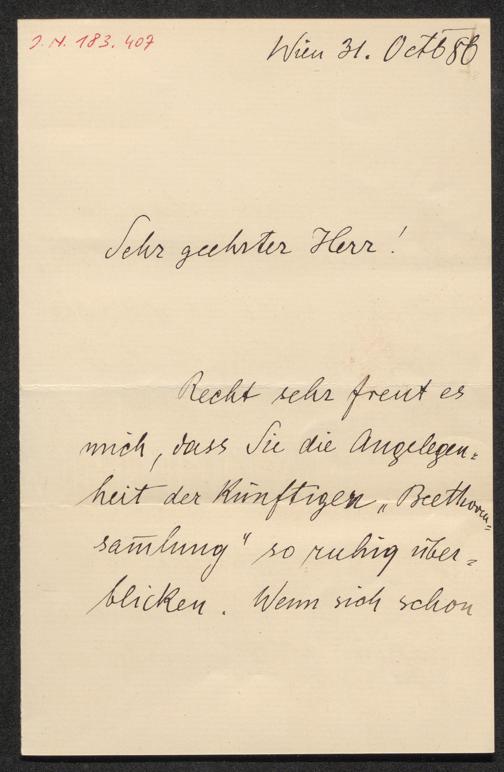 J. N. 183.407
Wien 31. Octb 86
Sehr geehrter Herr!
Recht sehr freut es
mich, dass Sie die Angelegen=
heit der künftigen „Beethoven=
sam̅lung" so ruhig über=
blicken. Wenn sich schon